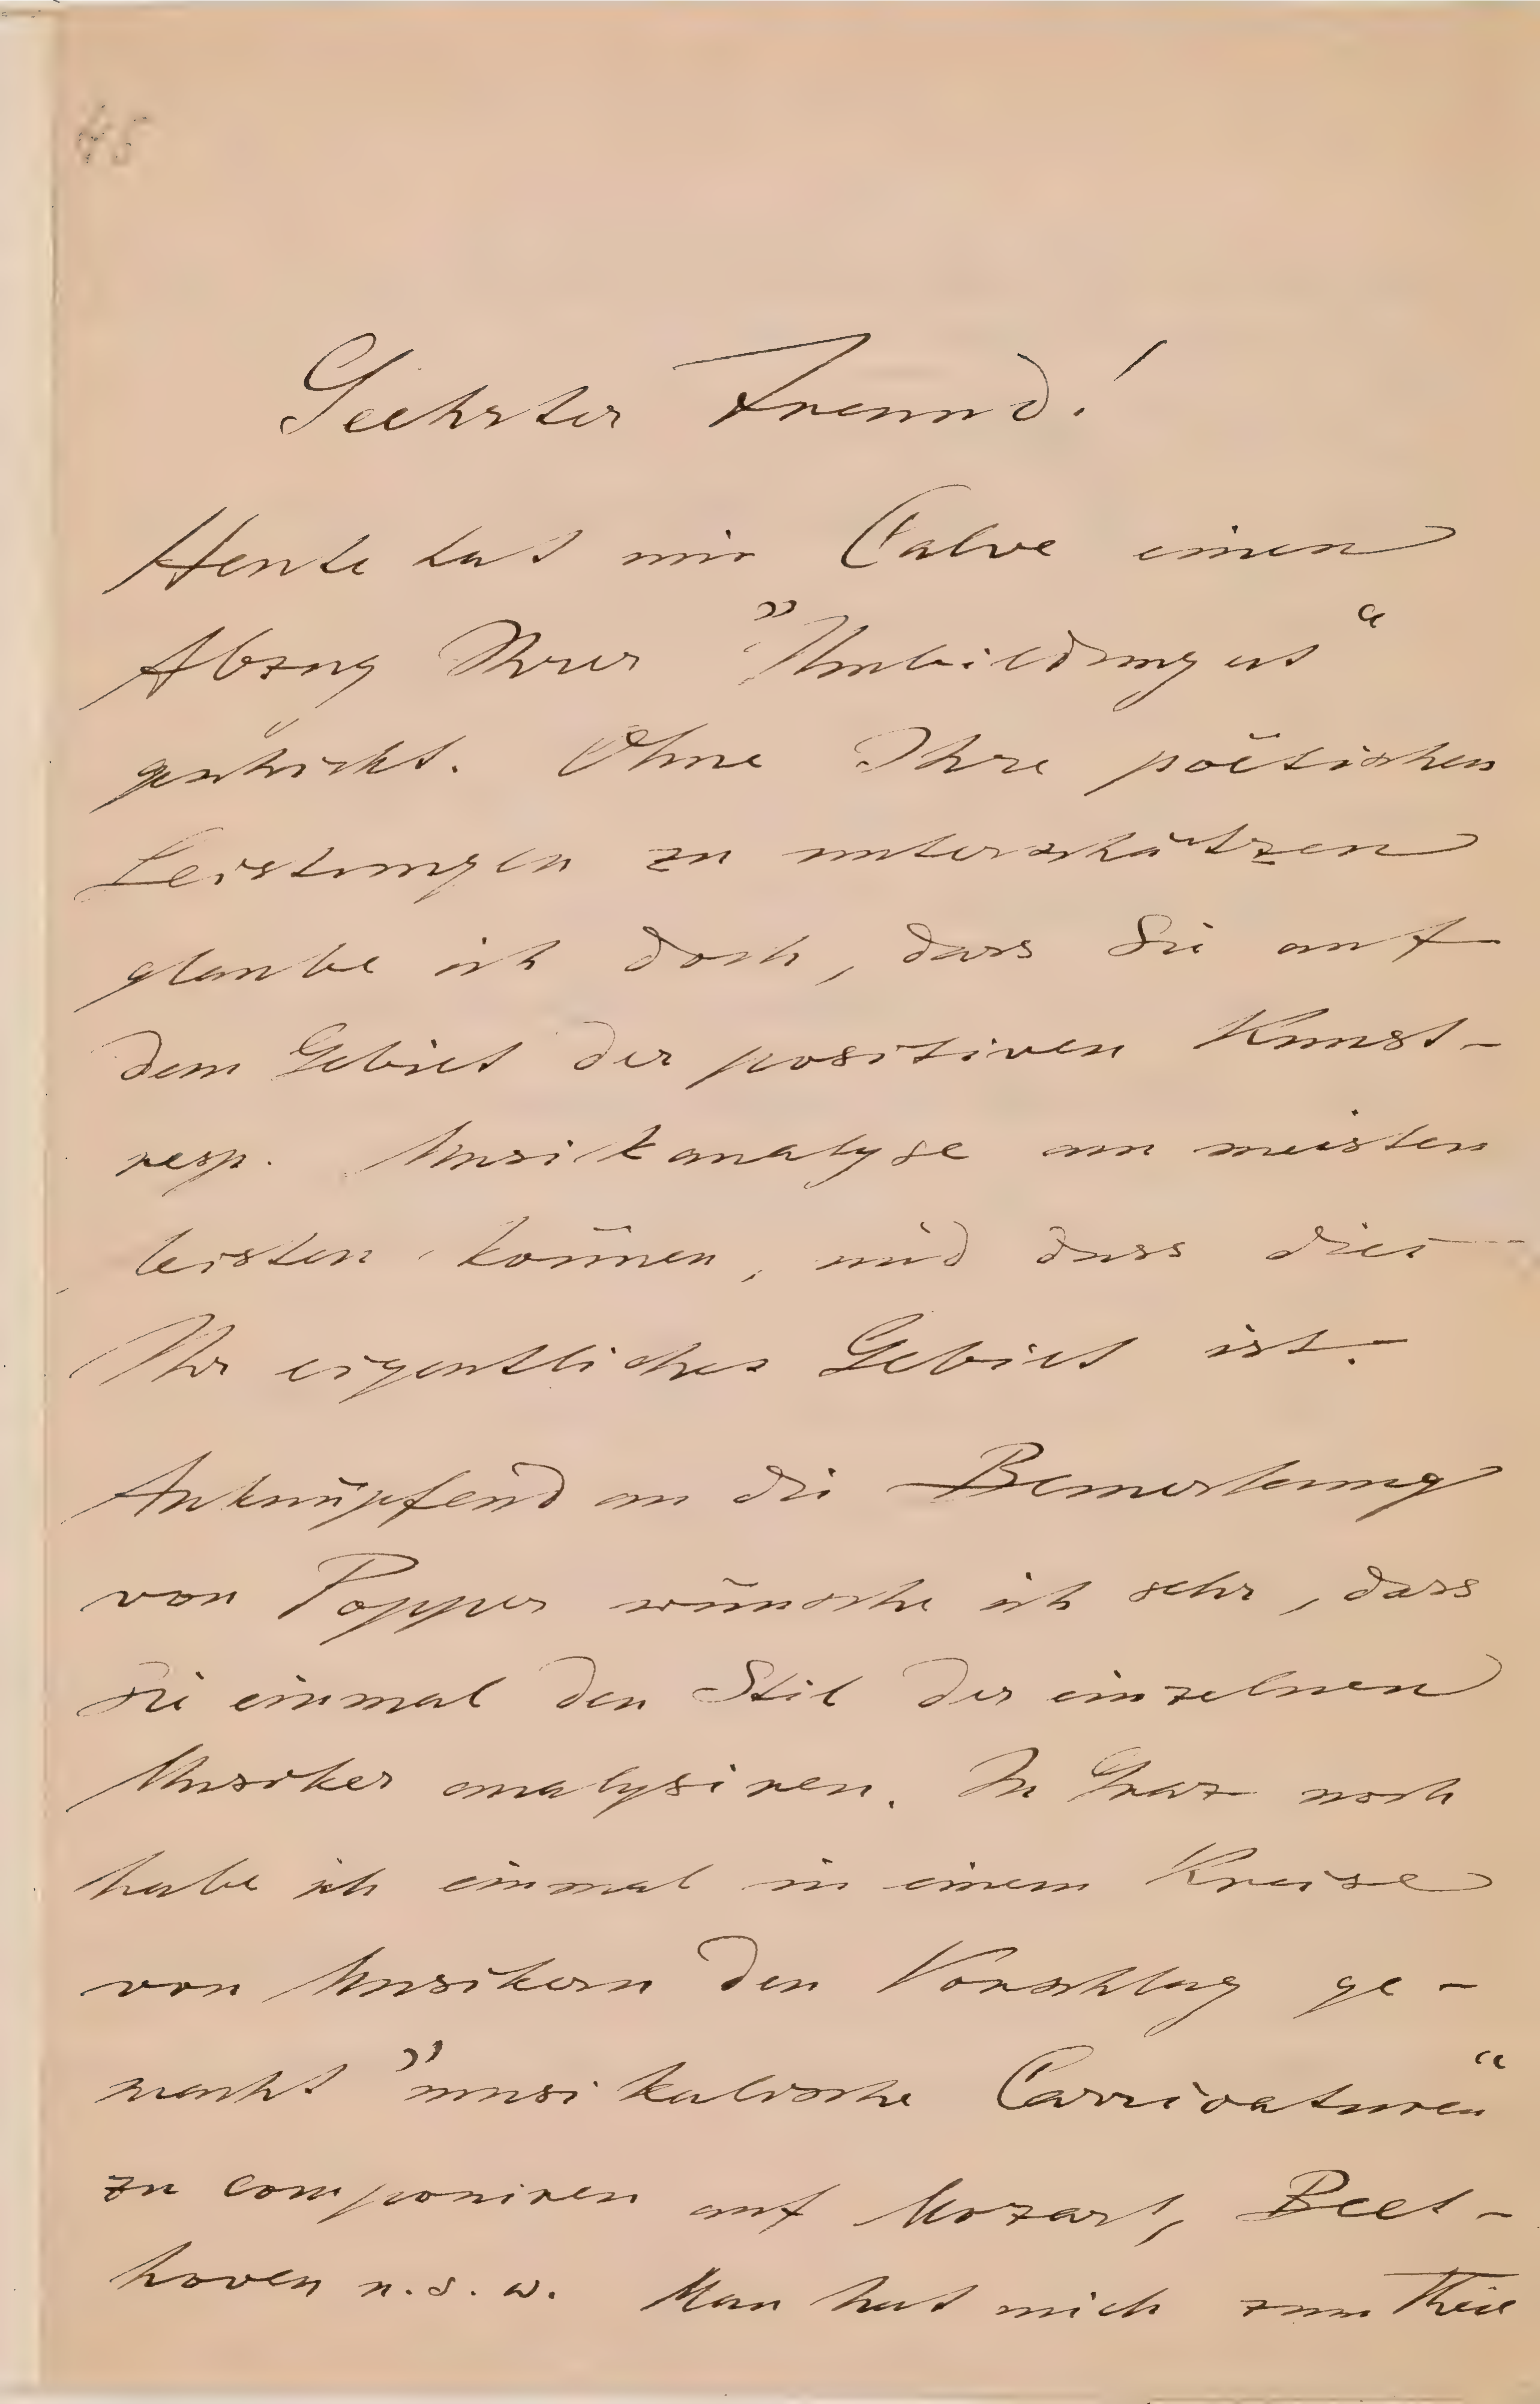 45
Geehrter Freund!
Heute hat mir Calve einen
Abzug Ihrer "Umbildungen"
geschickt. Ohne Ihre poëtischen
Leistungen zu unterschätzen
glaube ich doch, dass Sie auf
dem Gebiet der positiven Kunst-
resp. Musikanalyse am meisten
leisten können, und dass dies
Ihr eigentliches Gebiet ist.
Anknüpfend an die Bemerkung
von Popper wünsche ich sehr, dass
Sie einmal den Stil der einzelnen
Musiker analysiren. In Graz noch
habe ich einmal in einem Kreise
von Musikern den Vorschlag ge-
macht "musikalische Carricaturen"
zu componiren auf Mozart, Beet-
hoven u.s.w. Man hat mich zum Theil